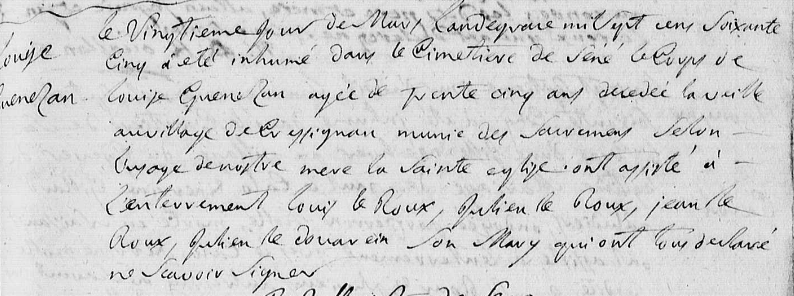 Louise
Guenehan
le Vingtieme jour de Mars L'andegrace mil sept cens soixante
Cinq a été inhumé dans le Cimetiere de Séné le Corps de
Louise Guenehan agée de trente cinq ans decedée la veille
au village de Cressignan munie des Sacremens selon
l'usage de nostre mere la Sainte eglise. ont assisté à
L'enterrement Louis le Roux, Julien le Roux, jean le
Roux, Julien le douarein Son Mary qui ont tous declaré
ne Scavoir Signer